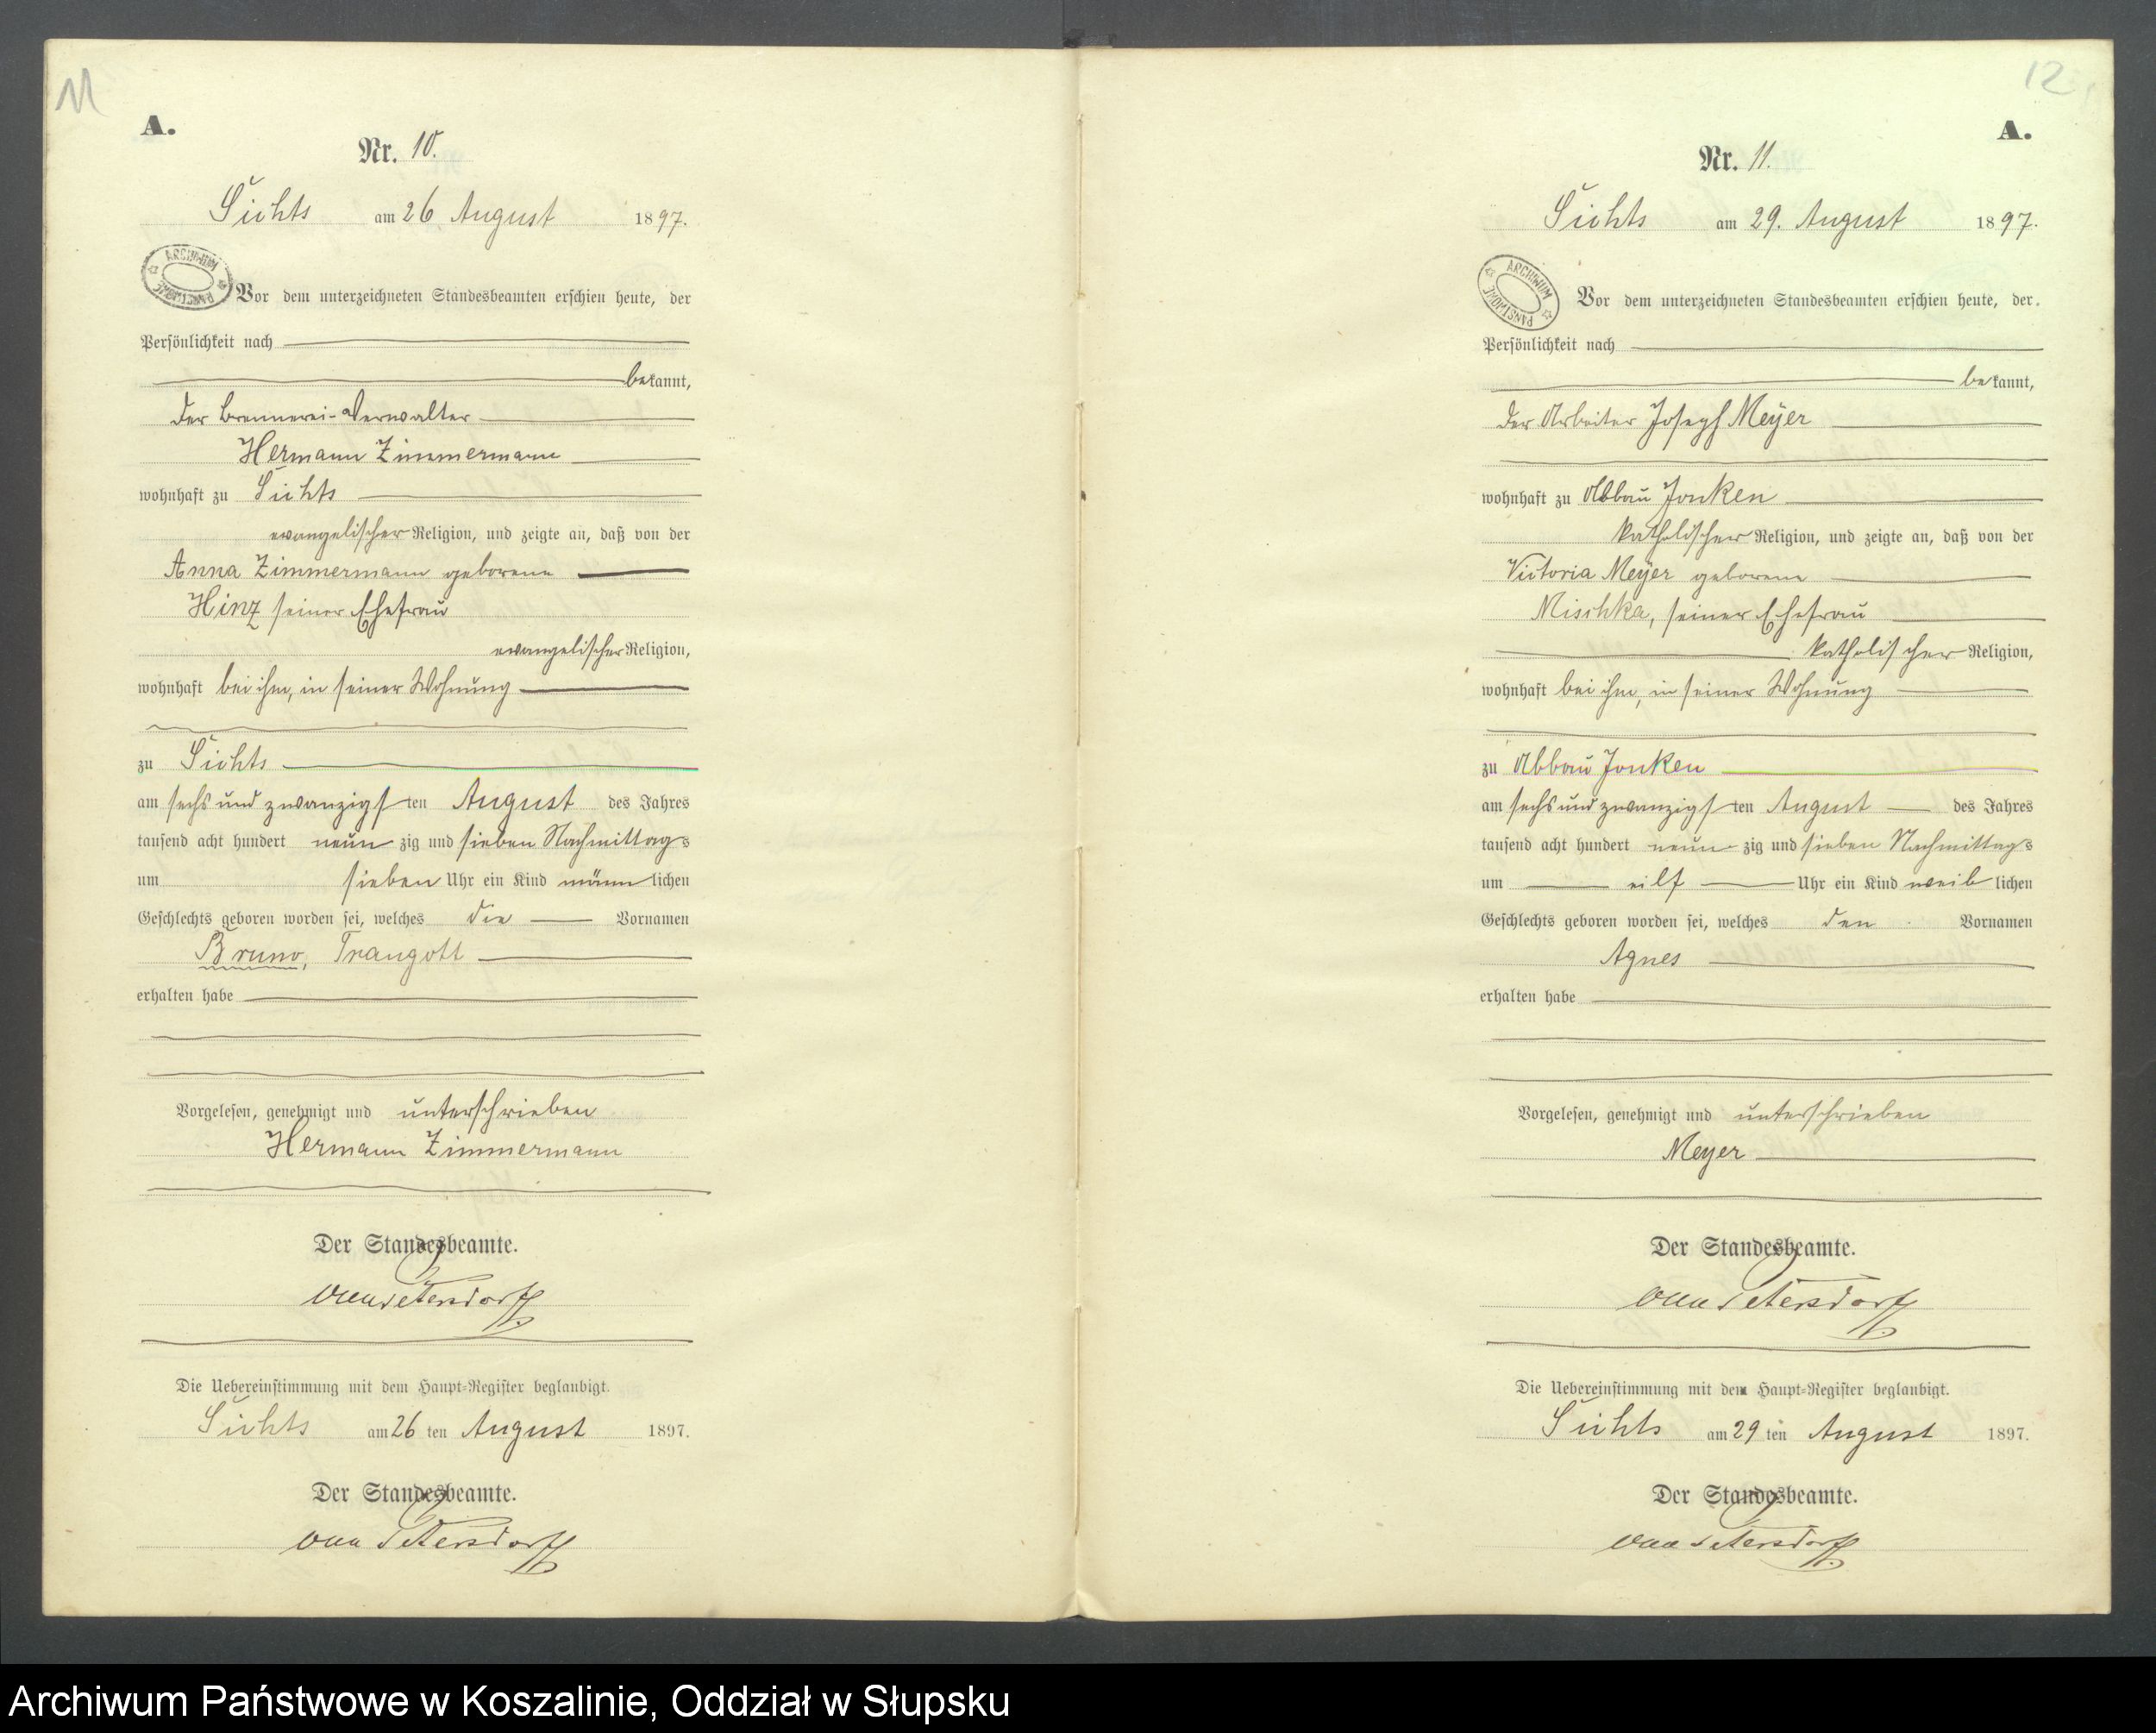 11
A.
Nr. 10.
Sichts am 26 August 1897.
ARCHIWUM PAŃSTWOWE
Vor dem unterzeichneten Standesbeamten erschien heute, der
Persönlichkeit nach
bekannt,
der Brennerei-Verwalter
Hermann Zimmermann
wohnhaft zu Sichts
evangelischer Religion, und zeigte an, daß von der
Anna Zimmermann geborene
Hinz seiner Ehefrau
evangelischer Religion,
wohnhaft bei ihm, in seiner Wohnung
zu Sichts
am sechs und zwanzigsten August des Jahres
tausend acht hundert neunzig und sieben Nachmittags
um sieben Uhr ein Kind männlichen
Geschlechts geboren worden sei, welches die Vornamen
Bruno, Traugott
erhalten habe
Vorgelesen, genehmigt und unterschrieben
Hermann Zimmermann
Der Standesbeamte.
von Petersdorff.
Die Uebereinstimmung mit dem Haupt-Register beglaubigt.
Sichts am 26 ten August 1897.
Der Standesbeamte.
von Petersdorff
12
A.
Nr. 11.
Sichts am 29. August 1897.
ARCHIWUM PAŃSTWOWE
Vor dem unterzeichneten Standesbeamten erschien heute, der
Persönlichkeit nach
bekannt,
der Arbeiter Joseph Meyer
wohnhaft zu Abbau Jonken
katholischer Religion, und zeigte an, daß von der
Victoria Meyer geborene
Mischka, seiner Ehefrau
katholischer Religion,
wohnhaft bei ihm, in seiner Wohnung
zu Abbau Jonken
am sechs und zwanzigsten August des Jahres
tausend acht hundert neunzig und sieben Nachmittags
um eilf Uhr ein Kind weiblichen
Geschlechts geboren worden sei, welches den Vornamen
Agnes
erhalten habe
Vorgelesen, genehmigt und unterschrieben
Meyer
Der Standesbeamte.
von Petersdorff.
Die Uebereinstimmung mit dem Haupt-Register beglaubigt.
Sichts am 29 ten August 1897.
Der Standesbeamte.
von Petersdorff.
Archiwum Państwowe w Koszalinie, Oddział w Słupsku